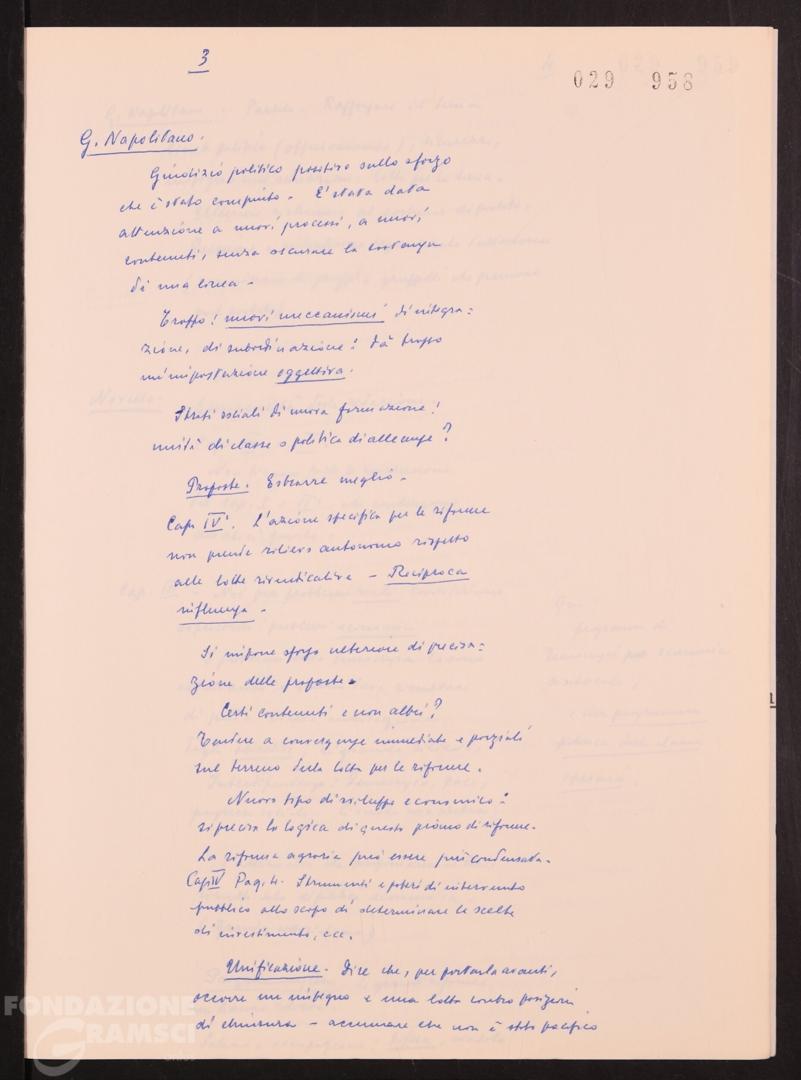 3
029 958
G. Napolitano.
Giudizio politico positivo sullo sforzo
che è stato compiuto. E' stata data
attenzione a nuovi processi, a nuovi
contenuti, senza oscurare la costanza
di una linea -
Troppo! nuovi meccanismi di integra=
zione, di subordinazione: dà troppo
un'impostazione oggettiva.
Strati sociali di nuova formazione!
unità di classe o politica di alleanze?
Proposte. Estrarre meglio -
Cap. IV°. L'azione specifica per le riforme
non prende rilievo autonomo rispetto
alle lotte rivendicative - Reciproca
influenza -
Si impone sforzo ulteriore di precisa=
zione delle proposte.
Certi contenuti e non altri?
Tendere a convergenze immediate e parziali
sul terreno della lotta per le riforme.
Nuovo tipo di sviluppo economico:
si precisa la logica di questo piano di riforme.
La riforma agraria può essere più condensata.
Cap IV Pag. 4. Strumenti e poteri di intervento
pubblico allo scopo di determinare le scelte
di investimento, ecc.
Unificazione. Dire che, per portarla avanti,
occorre un impegno e una lotta contro posizioni
di chiusura - accennare che non è stato pacifico
FONDAZIONE
GRAMSCI
ONLUS